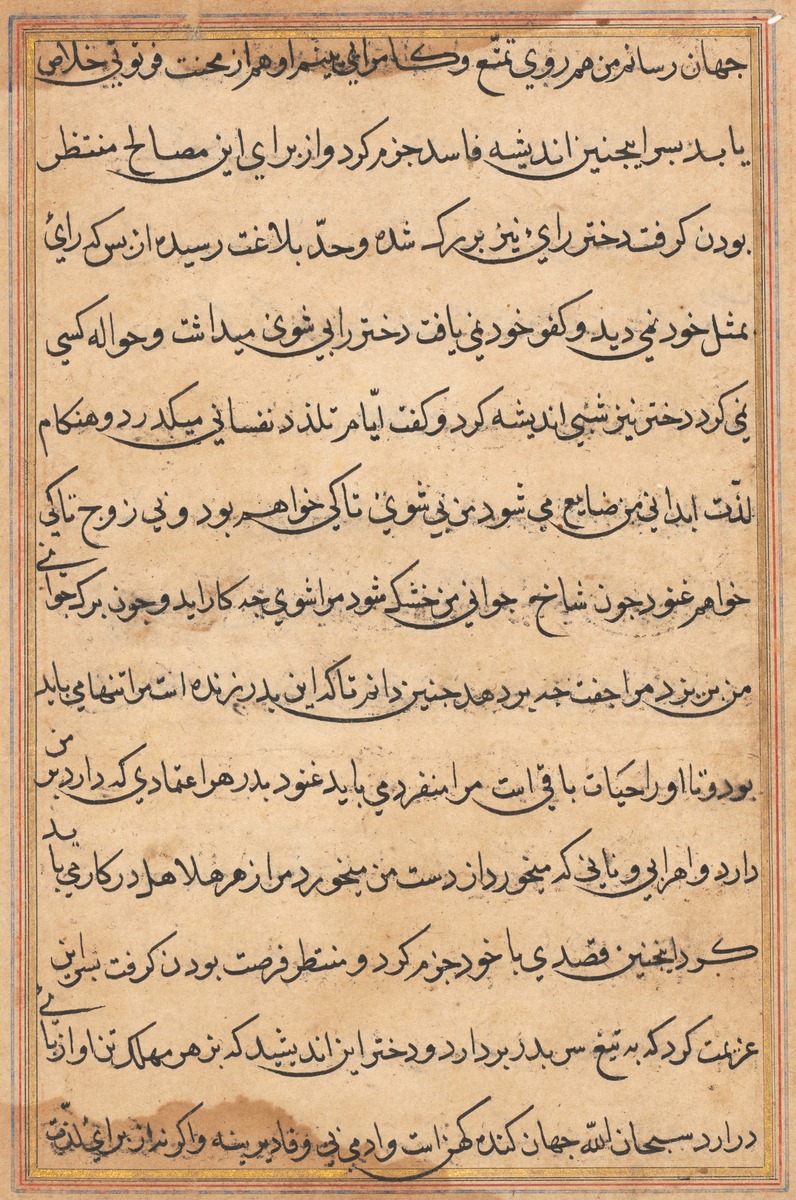 جهان رسانم من هم روی تمتّع و کامرانی بینم او هم از محنت فرتوتی خلاص
یابد پسر اینجنین اندیشه فاسد جزم کرد و از برای این مصالح منتظر
بودن کرفت دختر رایٔ نیز بزرک شده و حدّ بلاغت رسیده از بس که رایٔ
بمثل خود نمی دید و کفو خود نمی یافت دختر را بی شوی میداشت و حواله کسی
نمی کرد دختر نیز شبی اندیشه کرد و کفت ایّام تلذذ نفسانی میکذرد و هنکام
لذّت ابدانی من ضایع می شود من بی شوی تا کی خواهم بود و بی زوج تا کی
خواهم غنود جون شاخ جوانی من خشک شود مرا شوی جه کار اید و جون برک جوانی
من بریزد مرا جفت جه بر دهد جنین دانم تا که این بدر زنده است مرا تنها می باید
بود و تا او را حیَات باقی است مرا منفرد می باید غنود بدر هر اعتمادی که دارد بر من
دارد و اهر ابی و نانی که میخورد از دست من میخورد مرا زهر هلاهل در کار می باید
کرد اینجنین قصدی با خود جزم کرد و منتظر فرصت بودن کرفت بسر این
عزیمت کرد که به تیغ سر بدر بردارد و دختر این اندیشید که بزهر مهلک تن او از پا
درارد سبحان اللّه جهان کنده کهن است و ادمی بی وفا دیرینه و اکر نه از برایٔ لذّت